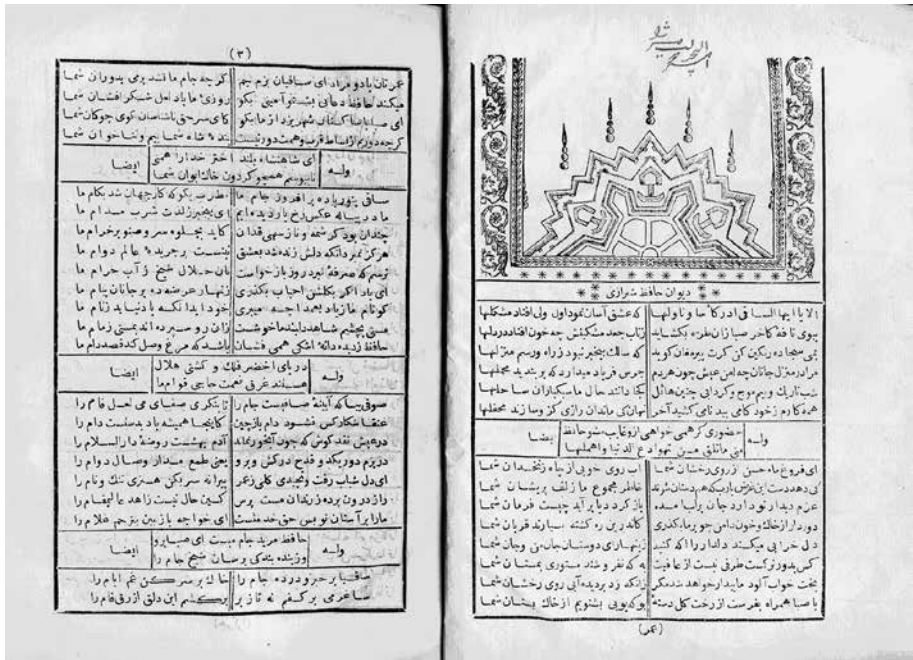 دیوان حافظ شیرازی
الا یا ایها الساقی ادر کأسا و ناولها که عشق آسان نمود اول ولی افتاد مشکلها
ببوی نافهٔ کاخر صبا زان طره بکشاید زتاب جعد مشکینش چه خون افتاد در دلها
بمی سجاده رنگین کن کرت پیر مغان کوید که سالك بیخبر نبود ز راه و رسم منزلها
مرا در منزل جانان چه امن عیش چون هر دم جرس فریاد میدارد که بربندید محملها
شب تاریك و بیم موج و کردابی چنین هائل کجا دانند حال ما سبکباران ساحلها
همه کارم ز خود کامی ببد نامی کشید آخر نهان کی ماند آن رازی کزو سازند محفلها
وله
حضوری کر همی خواهی ازو غایب مشو حافظ
متی ما تلق من تهوا دع الدنیا و اهملها
ایضا
ای فروغ ماه حسن از روی رخشان شما آب روی خوبی از چاه زنخدان شما
کی دهد دست این غرض یارب که همدستان شوند خاطر مجموع ما زلف پریشان شما
عزم دیدار تو دارد جان بر لب آمده باز کردد یا بر آید چیست فرمان شما
دور دار از خاك و خون دامن چو بر ما بکذری کاندرین ره کشته بسیارند قربان شما
دل خرابی میکند دلدار را آکه کنید زینهار ای دوستان جان من و جان شما
کس بدور نرکست طرفی نبست از عافیت به که نفروشند مستوری بمستان شما
بخت خواب آلود ما بیدار خواهد شد مکر زانکه زد بر دیده آبی روی رخشان شما
با صبا همراه بفرست از رخت کل دسته بو که بویی بشنویم از خاك بستان شما
(عمر)
(٣)
عمرتان باد و مراد ای ساقیان بزم جم کرچه جام ما نشد پرمی بدوران شما
میکند حافظ دعائی بشنو آمینی بکو روزئ ما باد لعل شکر افشان شما
ای صبا با ساکنان شهر یزد از ما بکو کای سر حق ناشناسان کوی چوکان شما
کرچه دوریم از بساط قرب و همت دور نیست بندهٔ شاه شما ییم و ثناخوان شما
وله
ای شاهنشاه بلند اختر خدا را همتی
تا ببوسم همچو کردون خاك ایوان شما
ایضا
ساقی بنور باده بر افروز جام ما مطرب بکو که کار جهان شد بکام ما
ما در پیاله عکس رخ یار دیده ایم ای بیخبر ز لذت شرب مدام ما
چندان بود کرشمه و ناز سهی قدان کاید بجلوه سرو صنوبر خرام ما
هرکز نمیرد آنکه دلش زنده شد بعشق ثبتست بر جریدهٔ عالم دوام ما
ترسم که صرفهٔ نبرد روز بازخواست نان حلال شیخ ز آب حرام ما
ای باد اکر بکلشن احباب بکذری زنهار عرضه ده بر جانان پیام ما
کو نام ما ز یاد بعمدا چه میبری خود آید آنکه یاد نیاید ز نام ما
مستی بچشم شاهد دلبند ما خوشست زان رو سپرده اند بمستی زمام ما
حافظ ز دیده دانهٔ اشکی همی فشان باشد که مرغ وصل کند قصد دام ما
وله
دریای اخضر فلك و کشتی هلال
هستند غرق نعمت حاجی قوام ما
ایضا
صوفی بیا که آینهٔ صافیست جام را تا بنکری صفای می لعل فام را
عنقا شکار کس نشود دام باز چین کاینجا همیشه باد بدستست دام را
در عیش نقد کوش که چون آبخور نماند آدم بهشت روضهٔ دار السلام را
در بزم دور یکدو قدح درکش و برو یعنی طمع مدار وصال دوام را
ای دل شباب رفت و نچیدی کلی ز عمر پیرانه سر بکن هنری ننك و نام را
راز درون پرده ز رندان مست پرس کین حال نیست زاهد عالیمقام را
ما را بر آستان تو بس حق خدمتست ای خواجه باز بین بترحم غلام را
وله
حافظ مرید جام میست ای صبا برو
وز بنده بندکی برسان شیخ جام را
ایضا
ساقیا برخیز و درده جام را خاك بر سر کن غم ایام را
ساغری بر کفم نه تا ز بر برکشم این دلق ازرق فام را